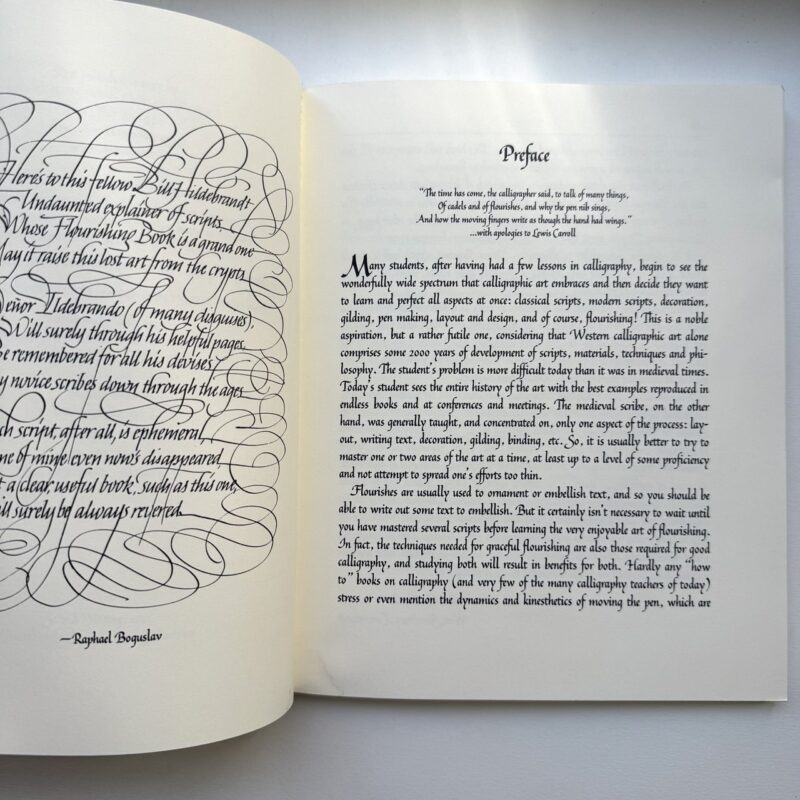 Here's to this fellow Bill Hildebrandt
Undaunted explainer of scripts
Whose Flourishing Book is a grand one
May it raise this lost art from the crypts.
Señor Ildebrando (of many disguises),
Will surely through his helpful pages
Be remembered for all his devises
By novice scribes down through the ages
script, after all, is ephemeral,
of mine even now's disappeared
a clear, useful book, such as this one,
surely be always revered.
—Raphael Boguslav
Preface
"The time has come, the calligrapher said, to talk of many things,
Of cadels and of flourishes, and why the pen nib sings,
And how the moving fingers write as though the hand had wings."
...with apologies to Lewis Carroll
Many students, after having had a few lessons in calligraphy, begin to see the
wonderfully wide spectrum that calligraphic art embraces and then decide they want
to learn and perfect all aspects at once: classical scripts, modern scripts, decoration,
gilding, pen making, layout and design, and of course, flourishing! This is a noble
aspiration, but a rather futile one, considering that Western calligraphic art alone
comprises some 2000 years of development of scripts, materials, techniques and phi-
losophy. The student's problem is more difficult today than it was in medieval times.
Today's student sees the entire history of the art with the best examples reproduced in
endless books and at conferences and meetings. The medieval scribe, on the other
hand, was generally taught, and concentrated on, only one aspect of the process: lay-
out, writing text, decoration, gilding, binding, etc. So, it is usually better to try to
master one or two areas of the art at a time, at least up to a level of some proficiency
and not attempt to spread one's efforts too thin.
Flourishes are usually used to ornament or embellish text, and so you should be
able to write out some text to embellish. But it certainly isn't necessary to wait until
you have mastered several scripts before learning the very enjoyable art of flourishing.
In fact, the techniques needed for graceful flourishing are also those required for good
calligraphy, and studying both will result in benefits for both. Hardly any "how
to" books on calligraphy (and very few of the many calligraphy teachers of today)
stress or even mention the dynamics and kinesthetics of moving the pen, which are